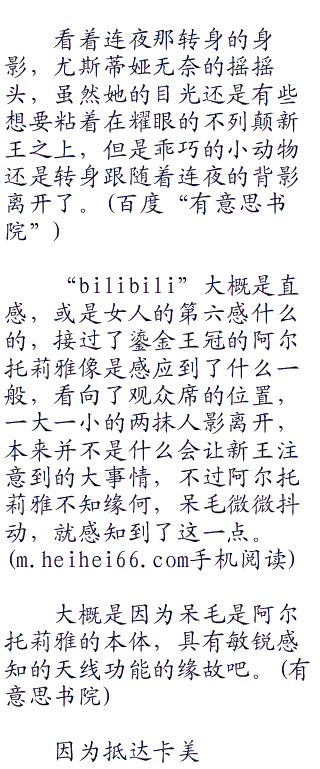 看着连夜那转身的身
影，尤斯蒂娅无奈的摇摇
头，虽然她的目光还是有些
想要粘着在耀眼的不列颠新
王之上，但是乖巧的小动物
还是转身跟随着连夜的背影
离开了。(百度“有意思书
院”)
“bilibili”大概是直
感，或是女人的第六感什么
的，接过了鎏金王冠的阿尔
托莉雅像是感应到了什么一
般，看向了观众席的位置，
一大一小的两抹人影离开，
本来并不是什么会让新王注
意到的大事情，不过阿尔托
莉雅不知缘何，呆毛微微抖
动，就感知到了这一点。
(m.heihei66.com手机阅读)
大概是因为呆毛是阿尔
托莉雅的本体，具有敏锐感
知的天线功能的缘故吧。(有
意思书院)
因为抵达卡美